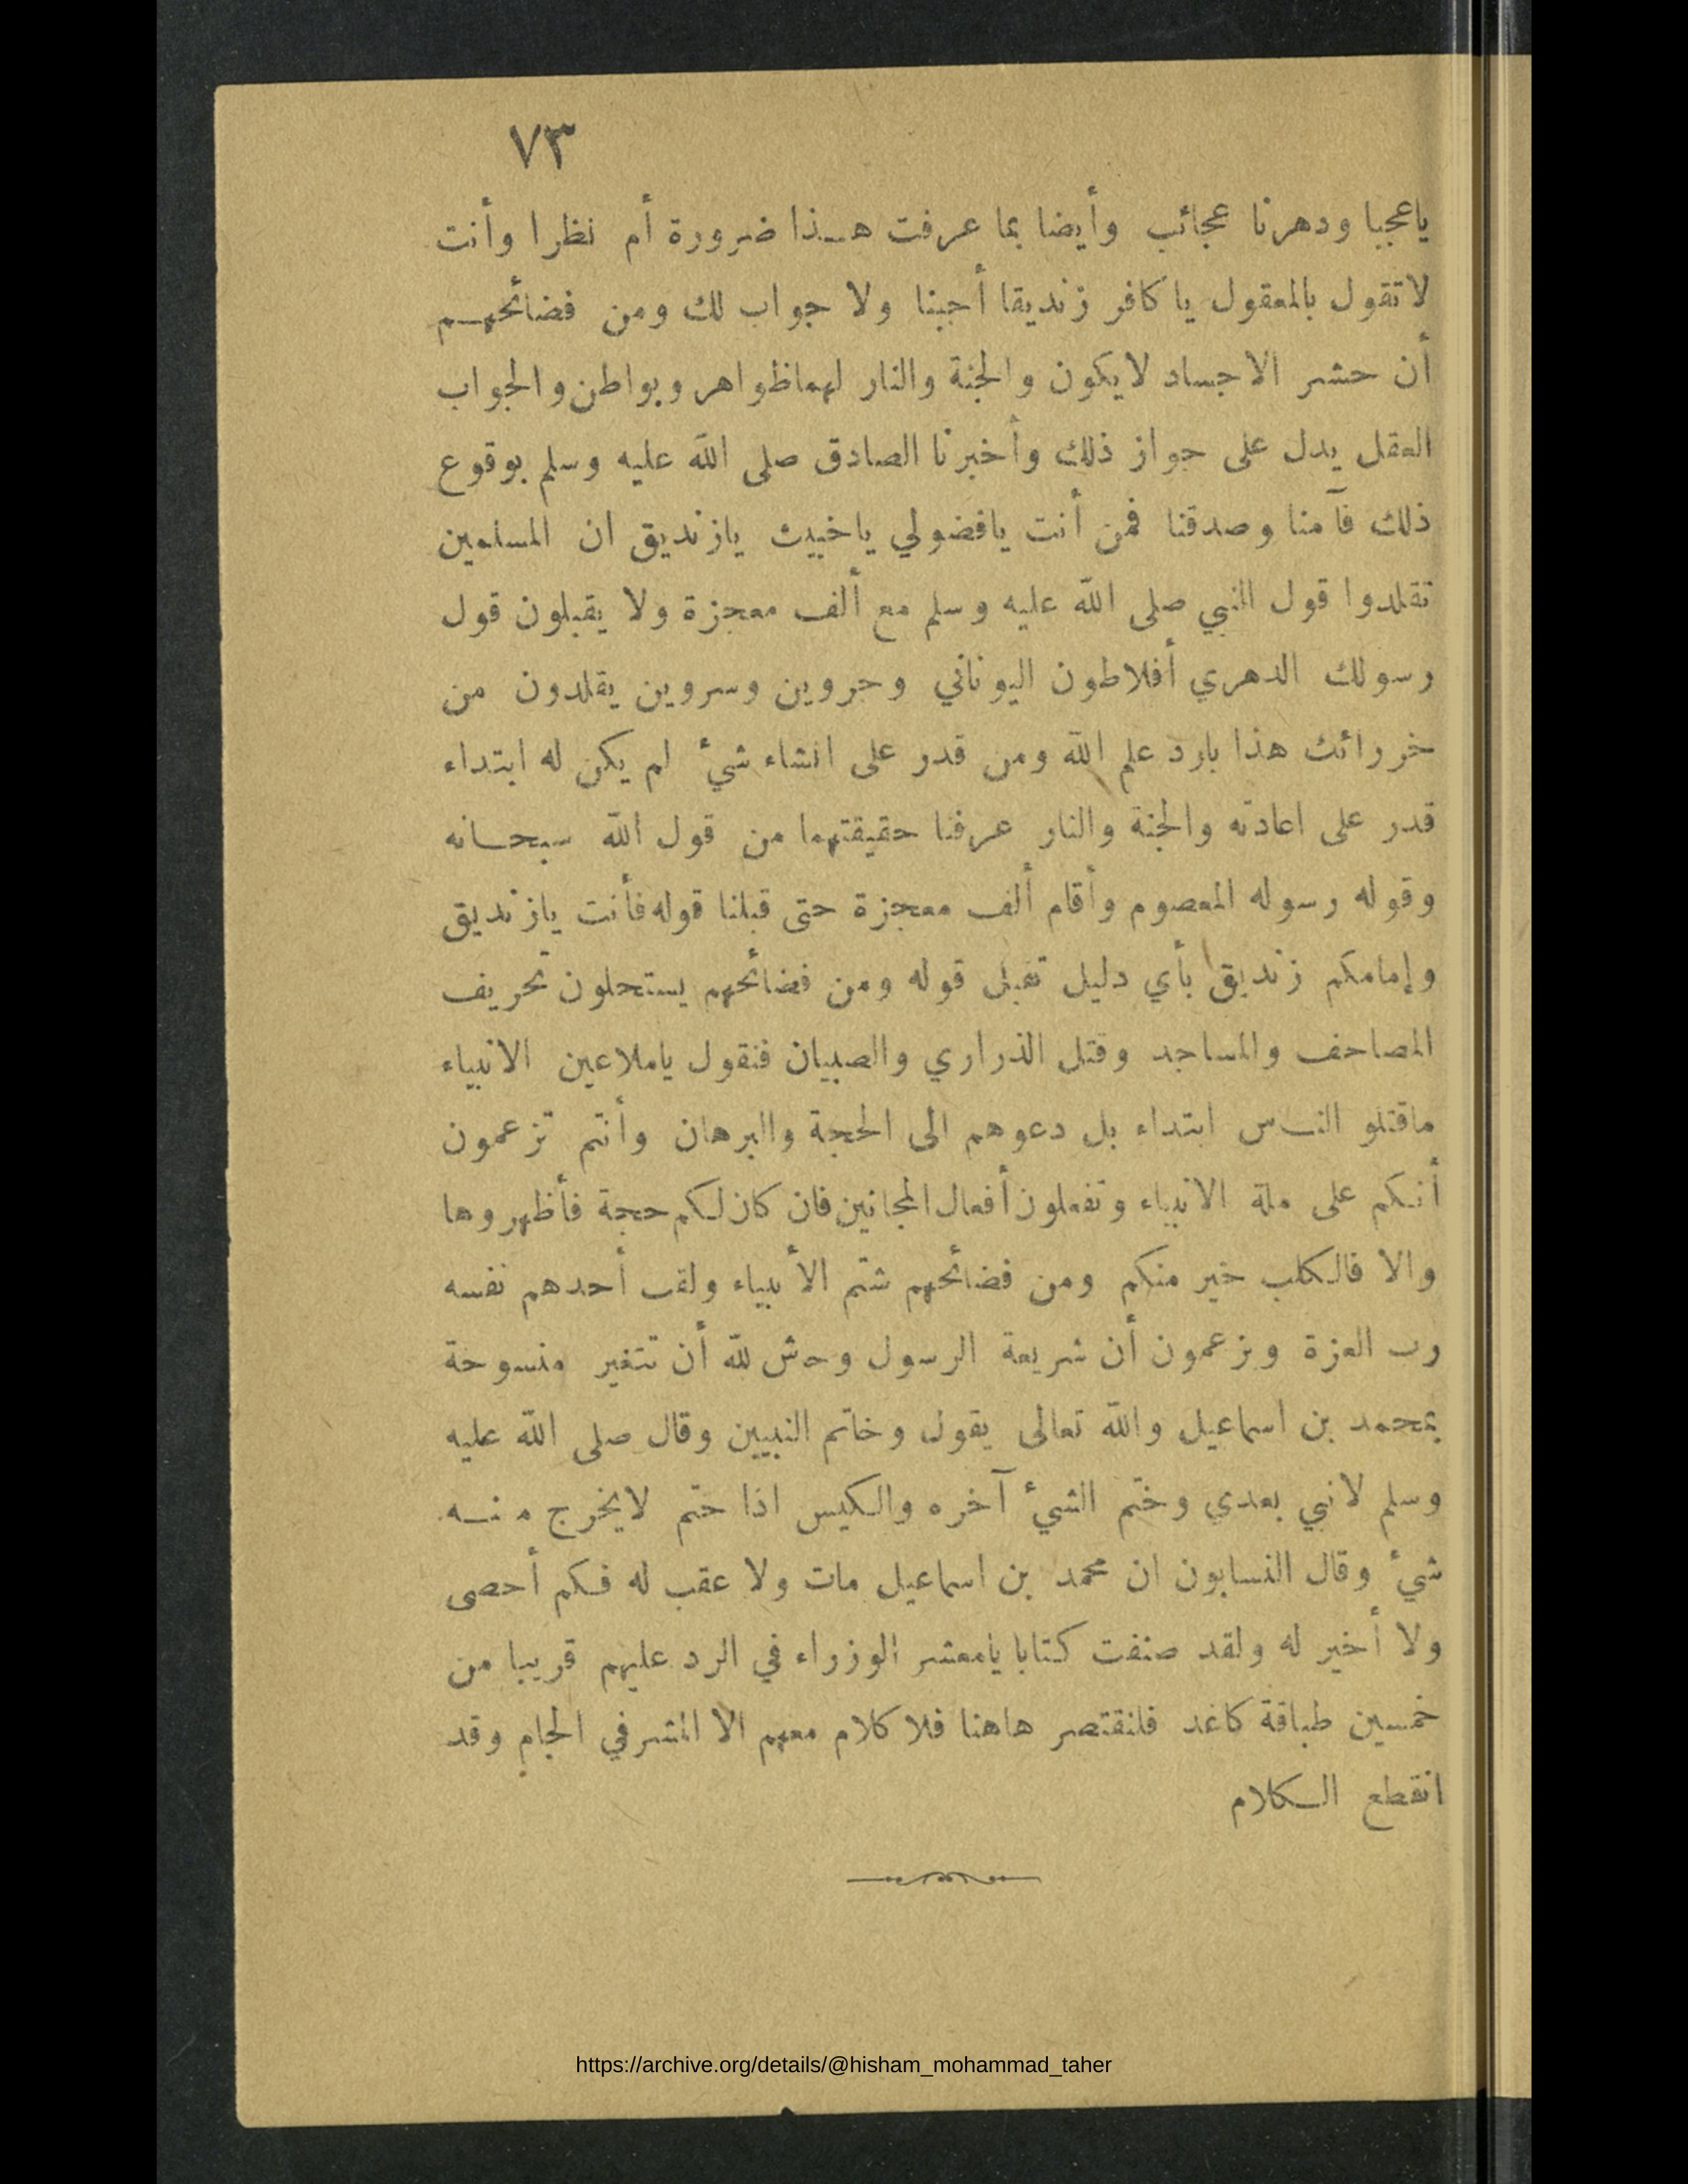 ٧٣
ياعجبا ودهرنا عجائب وأيضا بما عرفت هـذا ضرورة أم نظرا وأنت
لاتقول بالمعقول يا كافر زنديقا أجبنا ولا جواب لك ومن فضائحهـم
أن حشر الاجساد لايكون والجنة والنار لهماظواهر وبواطن والجواب
العقل يدل على جواز ذلك وأخبرنا الصادق صلى الله عليه وسلم بوقوع
ذلك فآمنا وصدقنا فمن أنت يافضولي ياخبيث يازنديق ان المسلمين
تقلدوا قول النبي صلى الله عليه وسلم مع ألف معجزة ولا يقبلون قول
رسولك الدهري أفلاطون اليوناني وجروين وسروين يقلدون من
خررائك هذا بارد علم الله ومن قدر على انشاء شيء لم يكن له ابتداء
قدر على اعادته والجنة والنار عرفنا حقيقتهما من قول الله سبحـانه
وقوله رسوله المعصوم وأقام ألف معجزة حتى قبلنا قوله فأنت يازنديق
وإمامكم زنديق بأي دليل تقبل قوله ومن فضائحهم يستحلون تحريف
المصاحف والمساجد وقتل الذراري والصبيان فنقول ياملاعين الانبياء
ماقتلو النـس ابتداء بل دعوهم الى الحجة والبرهان وأنتم تزعمون
أنـكم على ملة الانبياء وتفعلون أفعال المجانين فان كان لـكم حجة فأظهروها
والا فالـكلب خير منكم ومن فضائحهم شتم الأنبياء ولقب أحدهم نفسه
رب العزة ويزعمون أن شريعة الرسول وحش لله أن تتغير منسوخة
بمحمد بن اسماعيل والله تعالى يقول وخاتم النبيين وقال صلى الله عليه
وسلم لانبي بعدي وختم الشيء آخره والـكيس اذا ختم لايخرج منـه
شيء وقال النسابون ان محمد بن اسماعيل مات ولا عقب له فـكم أحصى
ولا أخبر له ولقد صنفت كتابا يامعشر الوزراء في الرد عليهم قريبا من
خمسين طباقة كاغد فلنقتصر هاهنا فلا كلام معهم الا المشرفي الجام وقد
انقطع الـكلام
https://archive.org/details/@hisham_mohammad_taher